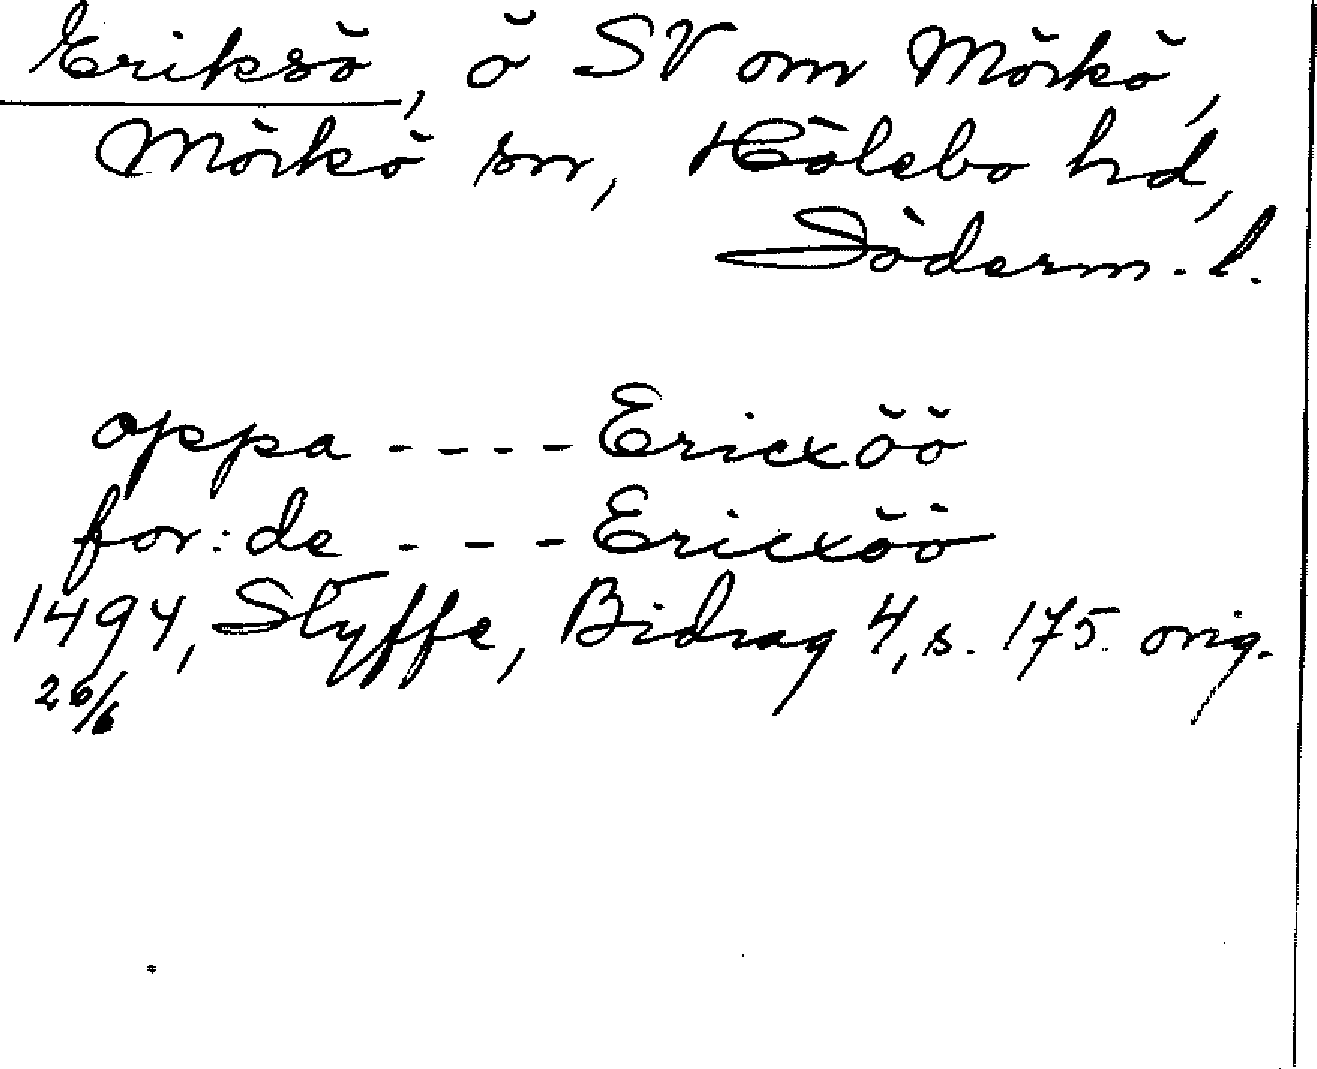 Eriksö, ö SV om Mörkö,
Mörkö sn, Hölebo hd,
Söderm. l.
oppa - - - - Ericxöö
for:de - - - Ericxöö
1494, Styffe, Bidrag 4, s. 175 orig.
26/6